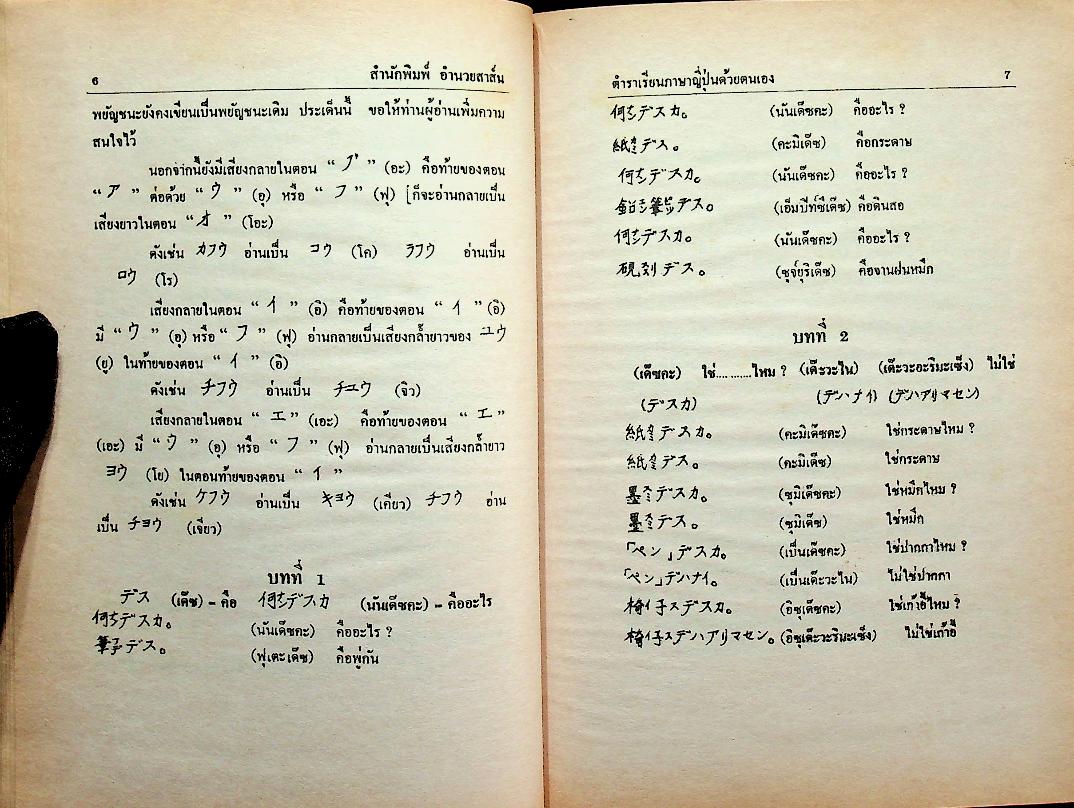 6 สำนักพิมพ์ อำนวยสาส์น
พยัญชนะยังคงเขียนเป็นพยัญชนะเดิม ประเด็นนี้ ขอให้ท่านผู้อ่านเพิ่มความ
สนใจไว้
นอกจากนี้ยังมีเสียงกลายในตอน “ ア ” (อะ) คือท้ายของตอน
“ ア ” ต่อด้วย “ ウ ” (อุ) หรือ “ フ ” (ฟุ) [ก็จะอ่านกลายเป็น
เสียงยาวในตอน “ オ ” (โอะ)
ดังเช่น カフウ อ่านเป็น コウ (โค) ラフウ อ่านเป็น
ロウ (โร)
เสียงกลายในตอน “ イ ” (อิ) คือท้ายของตอน “ イ ” (อิ)
มี “ ウ ” (อุ) หรือ “ フ ” (ฟุ) อ่านกลายเป็นเสียงกล้ำยาวของ ユウ
(ยู) ในท้ายของตอน “ イ ” (อิ)
ดังเช่น チフウ อ่านเป็น チユウ (จิว)
เสียงกลายในตอน “ エ ” (เอะ) คือท้ายของตอน “ エ ”
(เอะ) มี “ ウ ” (อุ) หรือ “ フ ” (ฟุ) อ่านกลายเป็นเสียงกล้ำยาว
ヨウ (โย) ในตอนท้ายของตอน “ イ ”
ดังเช่น ケフウ อ่านเป็น キヨウ (เคียว) チフウ อ่าน
เป็น チヨウ (เจียว)
บทที่ 1
デス (เด๊ซ) - คือ 何デスカ (นันเด๊ซคะ) - คืออะไร
何デスカ。 (นันเด๊ซคะ) คืออะไร ?
筆デス。 (ฟุเตะเด๊ซ) คือพู่กัน
ตำราเรียนภาษาญี่ปุ่นด้วยตนเอง 7
何デスカ。 (นันเด๊ซคะ) คืออะไร ?
紙デス。 (คะมิเด๊ซ) คือกระดาษ
何デスカ。 (นันเด๊ซคะ) คืออะไร ?
鉛筆デス。 (เอ็มปีท์ซีเด๊ซ) คือดินสอ
何デスカ。 (นันเด๊ซคะ) คืออะไร ?
硯デス。 (ซุจ์ยุริเด๊ซ) คือจานฝนหมึก
บทที่ 2
(เด๊ซคะ) ใช่...........ไหม ? (เด๊ะวะไน) (เด๊ะวะอะริมะเซ็ง) ไม่ใช่
(デスカ) (デハナイ) (デハアリマセン)
紙デスカ。 (คะมิเด๊ซคะ) ใช่กระดาษไหม ?
紙デス。 (คะมิเด๊ซ) ใช่กระดาษ
墨デスカ。 (ซุมิเด๊ซคะ) ใช่หมึกไหม ?
墨デス。 (ซุมิเด๊ซ) ใช่หมึก
「ペン」デスカ。 (เป็นเด๊ซคะ) ใช่ปากกาไหม ?
「ペン」デハナイ。 (เป็นเด๊ะวะไน) ไม่ใช่ปากกา
椅子デスカ。 (อิซุเด๊ซคะ) ใช่เก้าอี้ไหม ?
椅子デハアリマセン。 (อิซุเด๊ะวะริมะเซ็ง) ไม่ใช่เก้าอี้